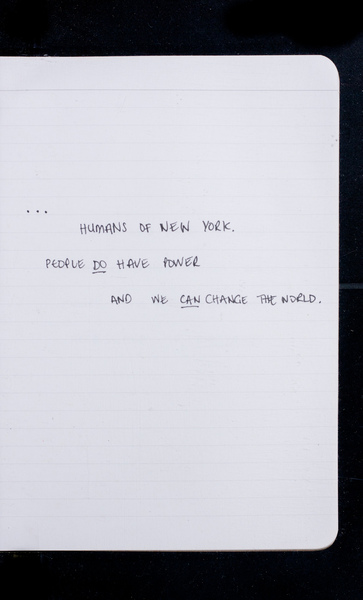 ...
HUMANS OF NEW YORK.
PEOPLE DO HAVE POWER
AND WE CAN CHANGE THE WORLD.